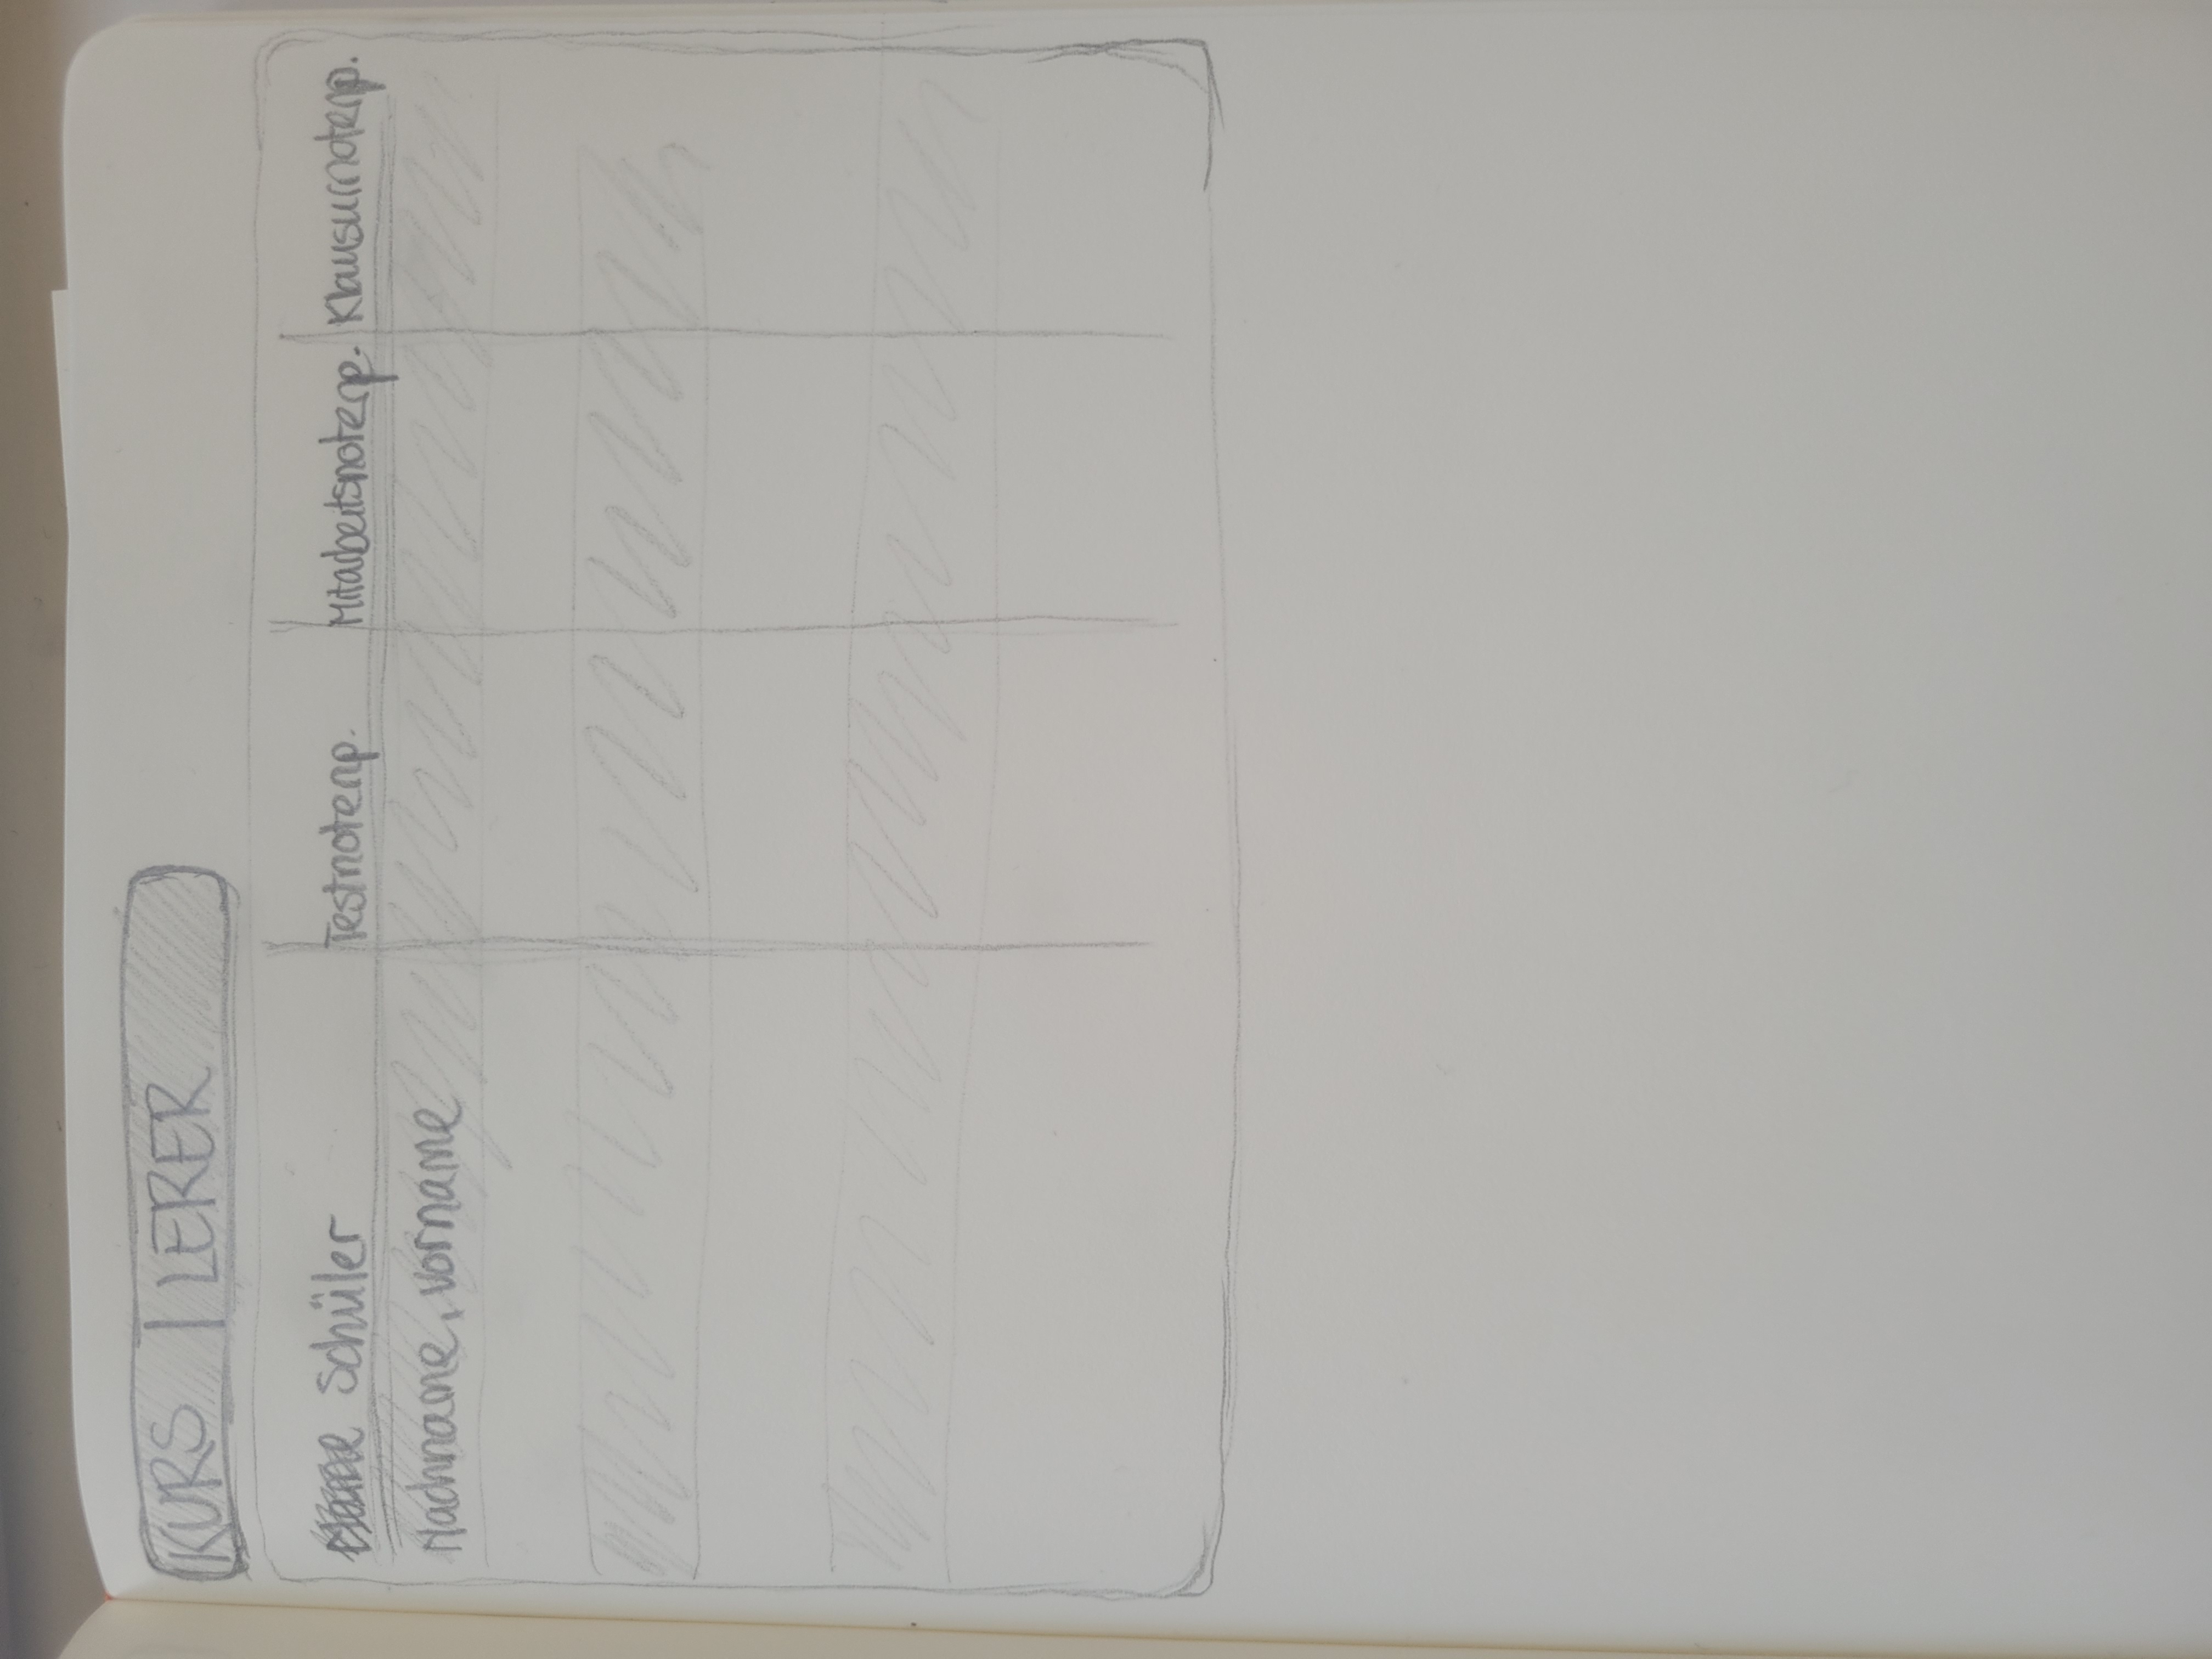 KURS | LERER
Schüler Testnotenp. Mitarbeitsnotenp. Klausurnotenp.
Nachname, Vorname